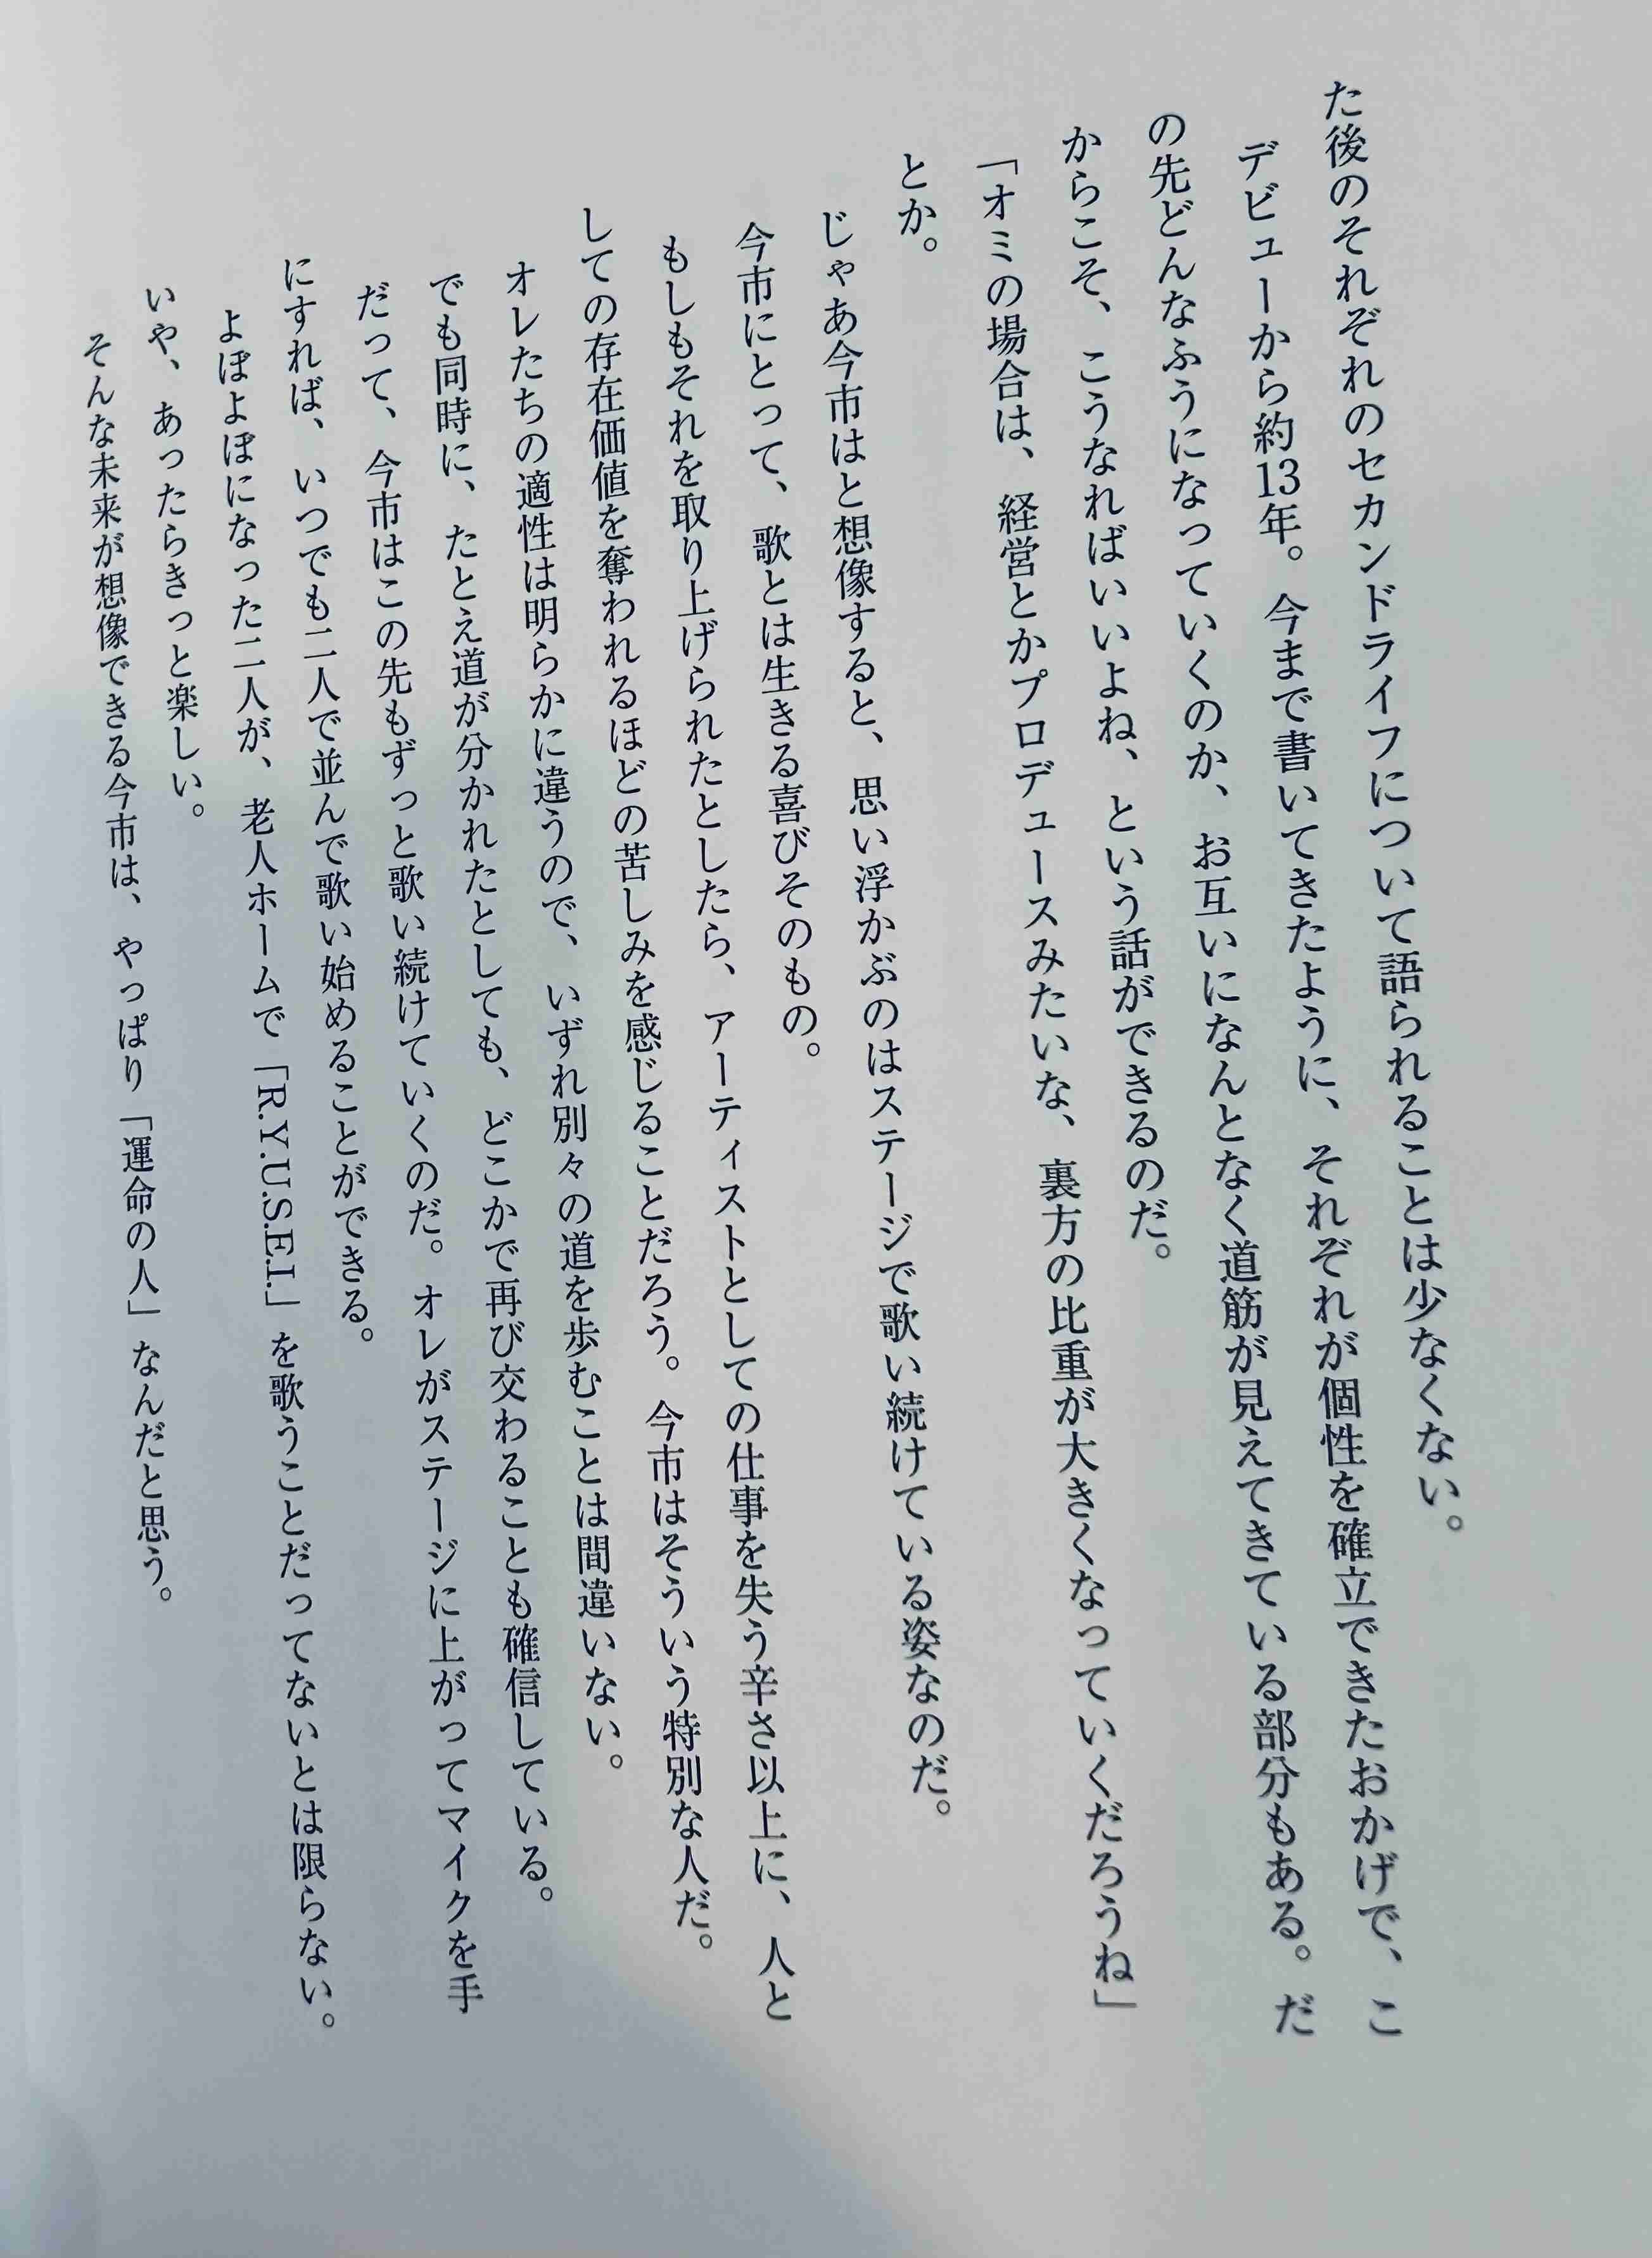 た後のそれぞれのセカンドライフについて語られることは少なくない。
デビューから約13年。今まで書いてきたように、それぞれが個性を確立できたおかげで、こ
の先どんなふうになっていくのか、お互いになんとなく道筋が見えてきている部分もある。だ
からこそ、こうなればいいよね、という話ができるのだ。
「オミの場合は、経営とかプロデュースみたいな、裏方の比重が大きくなっていくだろうね」
とか。
じゃあ今市はと想像すると、思い浮かぶのはステージで歌い続けている姿なのだ。
今市にとって、歌とは生きる喜びそのもの。
もしもそれを取り上げられたとしたら、アーティストとしての仕事を失う辛さ以上に、人と
しての存在価値を奪われるほどの苦しみを感じることだろう。今市はそういう特別な人だ。
オレたちの適性は明らかに違うので、いずれ別々の道を歩むことは間違いない。
でも同時に、たとえ道が分かれたとしても、どこかで再び交わることも確信している。
だって、今市はこの先もずっと歌い続けていくのだ。オレがステージに上がってマイクを手
にすれば、いつでも二人で並んで歌い始めることができる。
よぼよぼになった二人が、老人ホームで「R.Y.U.S.E.I.」を歌うことだってないとは限らない。
いや、あったらきっと楽しい。
そんな未来が想像できる今市は、やっぱり「運命の人」なんだと思う。